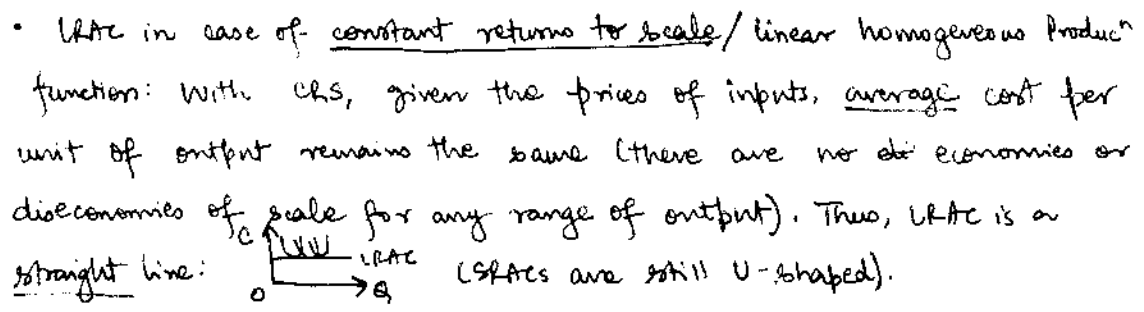 • LRAC in case of constant returns to scale / linear homogeneous Producⁿ
function: With CRS, given the prices of inputs, average cost per
unit of output remains the same (there are no economies or
diseconomies of scale for any range of output). Thus, LRAC is a
straight line: C LRAC O Q (SRACs are still U-shaped).